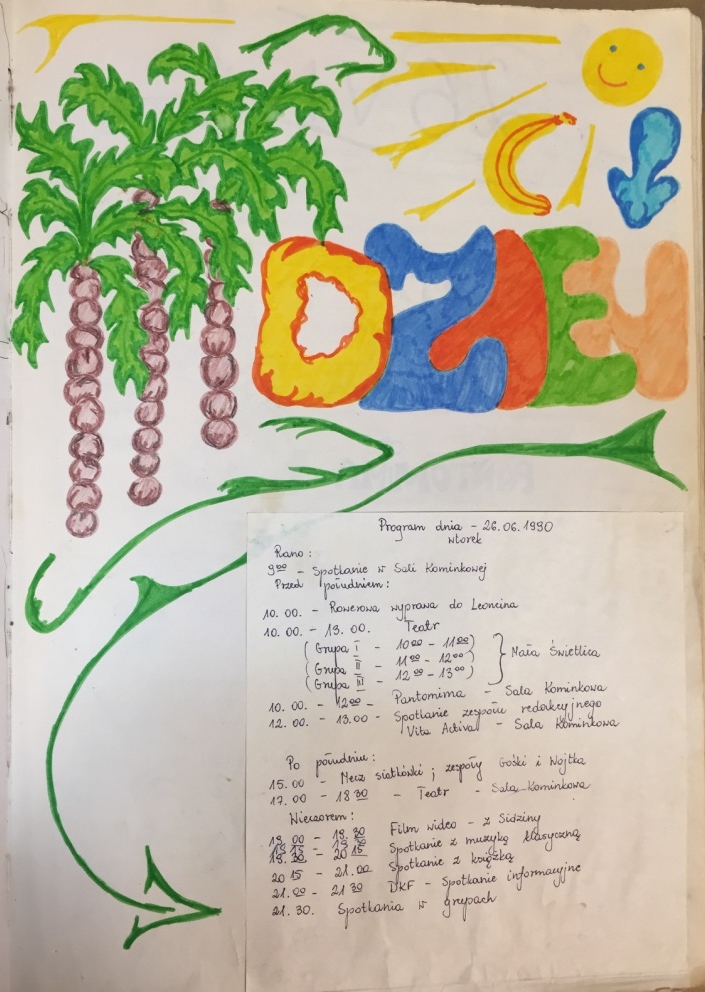 DZIEŃ
Program dnia - 26.06.1990
wtorek
Rano:
9⁰⁰ - Spotkanie w Sali Kominkowej
Przed południem:
10.00. - Rowerowa wyprawa do Leoncina
10.00. - 13.00. Teatr
(Grupa I - 10⁰⁰ - 11⁰⁰)
(Grupa II - 11⁰⁰ - 12⁰⁰) Mała Świetlica
(Grupa III - 12⁰⁰ - 13⁰⁰)
10.00. - 12⁰⁰ - Pantomima - Sala Kominkowa
12.00. - 13.00 - Spotkanie zespołu redakcyjnego
Vita Activa - Sala Kominkowa
Po południu:
15.00 - Mecz siatkówki; zespoły Gośki i Wojtka
17.00 - 18³⁰ - Teatr - Sala Kominkowa
Wieczorem:
Film wideo - z Sidziny
Spotkanie z muzyką klasyczną
20¹⁵ - 21.00 Spotkanie z książką
21.⁰⁰ - 21³⁰ DKF - Spotkanie informacyjne
21.30. Spotkania w grupach